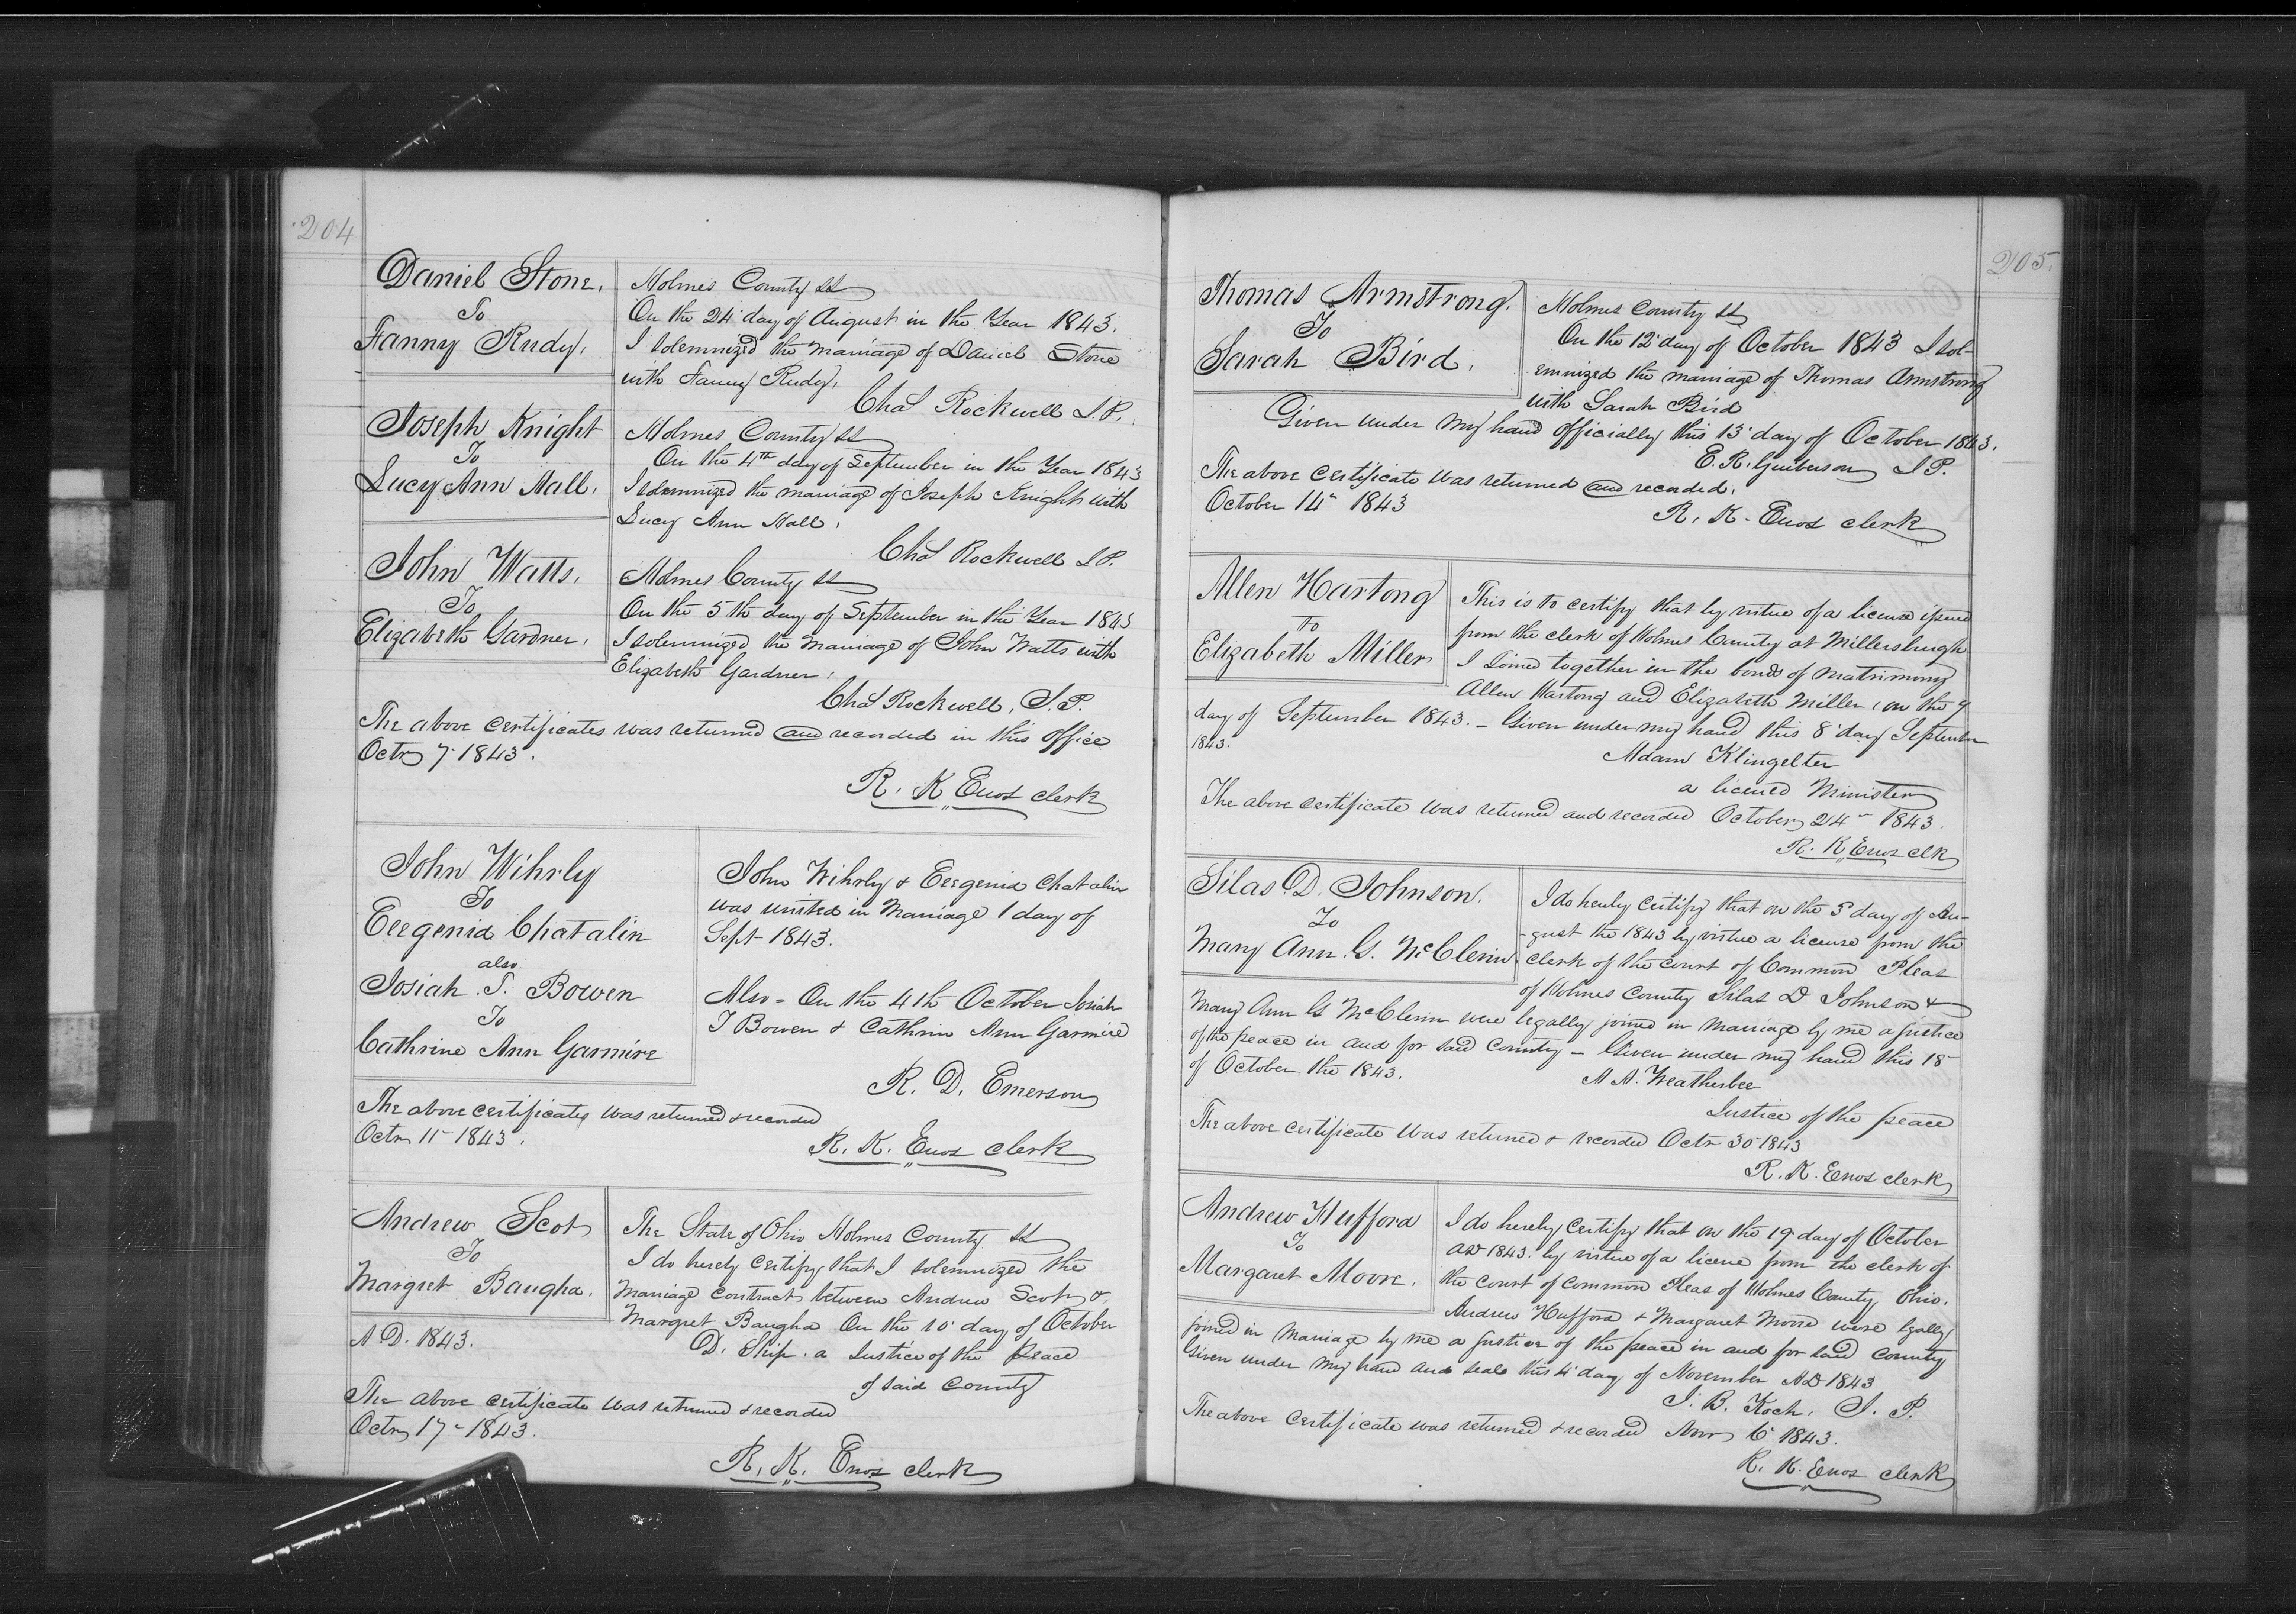 204
Daniel Stone.
To
Fanny Rudy.
Holmes County ss
On the 24 day of August in the Year 1843.
I solemnized the marriage of Daniel Stone
with Fanny Rudy.
Chas Rockwell J.P.
Joseph Knight
To
Lucy Ann Hall.
Holmes County ss
On the 4th day of September in the Year 1843
I solemnized the marriage of Joseph Knight with
Lucy Ann Hall.
Chas Rockwell J.P.
John Watts.
To
Elizabeth Gardner.
Holmes County ss
On the 5th day of September in the Year 1843
I solemnized the marriage of John Watts with
Elizabeth Gardner.
Chas Rockwell, J.P.
The above certificates was returned and recorded in this office
Octr 7 1843.
R. K Enos clerk
John Wihrly
To
Eergenia Chatalin
also
Josiah T. Bowen
To
Cathrine Ann Garmire
John Wihrly & Eergenia Chatalin
was united in Marriage 1 day of
Sept 1843.
Also - On the 4th October Josiah
T Bowen & Cathrin Ann Garmire
R. D. Emerson
The above certificates was returned & recorded
Octr 11 - 1843.
R. K. Enos clerk
Andrew Scot
To
Margret Baugha.
The State of Ohio Holmes County ss
I do herely certify that I solemnized the
marriage contract between Andrew Scot &
Margret Baugha On the 10 day of October
A D. 1843.
D. Ship. a Justice of the Peace
of said County
The above certificate was returned & recorded
Octr 17 - 1843.
R. K. Enos clerk
205.
Thomas Armstrong.
To
Sarah Bird.
Holmes County ss
On the 12 day of October 1843 I sol-
emnized the marriage of Thomas Armstrong
with Sarah Bird
Given under my hand officially this 13 day of October 1843.
E. R. Guiberson J P.
The above certificate was returned and recorded.
October 14 - 1843
R. K. Enos clerk
Allen Hartong
To
Elizabeth Miller
This is to certify that by virtue of a license issued
from the clerk of Holmes County at Millersburgh
I Joined together in the bonds of matrimony
Allen Hartong and Elizabeth Miller, on the 7
day of September 1843. - Given under my hand this 8 day September
1843.
Adam Klingelter
a licened Minister
The above certificate was returned and recorded October 24 - 1843.
R. K. Enos clk
Silas D. Johnson.
To
Mary Ann. G. McClenin
I do herely certify that on the 5 day of Au-
-gust the 1843 by virtue a license from the
clerk of the court of Common Pleas
of Holmes County Silas D Johnson &
Mary Ann G McClenin were legally joined in marriage by me a justice
of the peace in and for said County - Given under my hand this 18
of October the 1843.
A A. Weatherbee
Justice of the peace
The above certificate was returned & recorded Octr 30 1843
R. K. Enos clerk
Andrew Hufford
To
Margaret Moore.
I do herely certify that on the 19 day of October
AD 1843. by virtue of a licene from the clerk of
the court of Common Pleas of Holmes County Ohio.
Andrew Hufford & Margaret Moore were legally
joined in marriage by me a justice of the peace in and for said County
Given under my hand and seal this 4 day of November AD 1843
J. B. Koch, J. P.
The above certificate was returned & recorded Novr 6 1843.
R. K. Enos clerk